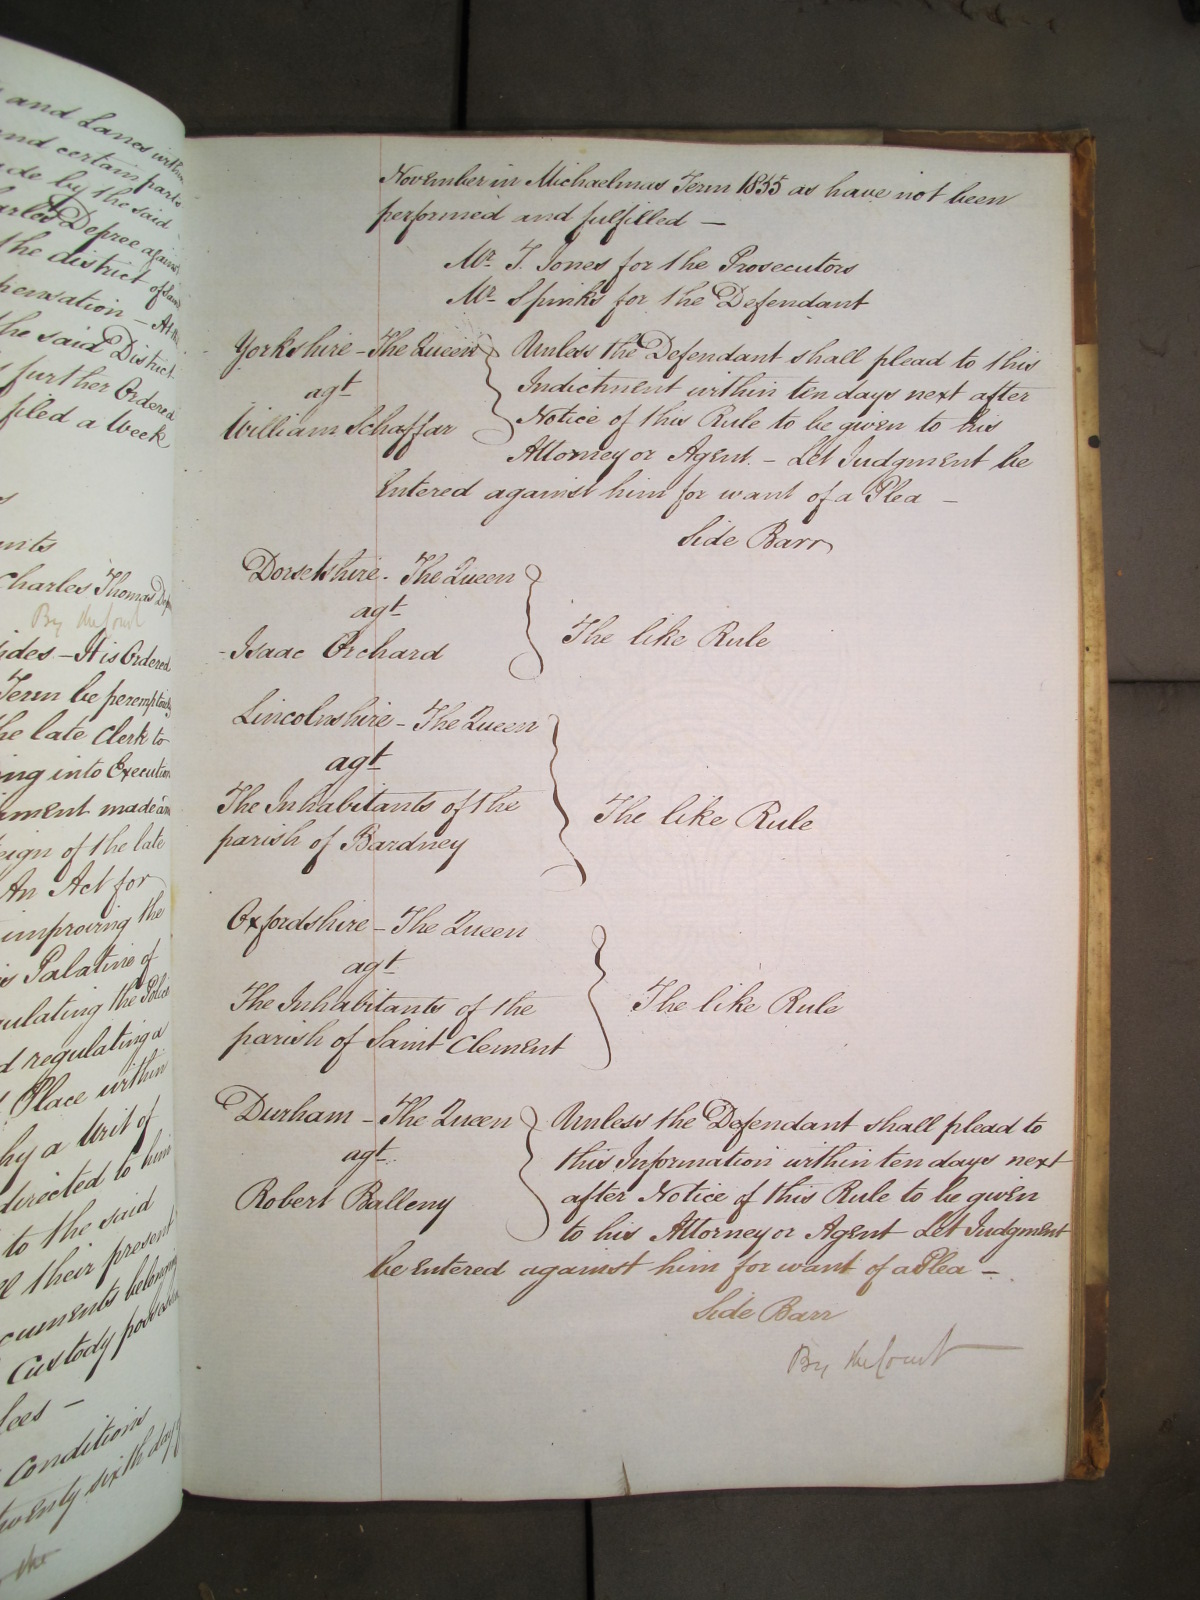 and Lanes within
and certain parts
by the said
Depree against
the district of said
pensation — At
the said District
further Ordered
filed a Week
Charles Thomas
By the Court
ides — It is Ordered
Term be peremptorily
the late Clerk to
ing into Execution
ment made
eign of the late
An Act for
improving the
Palatine of
ulating the Police
d regulating a
Place within
by a Writ of
directed to him
to the said
ll their present
cuments belonging
Custody
ees —
Conditions
twenty sixth day
the
November in Michaelmas Term 1855 as have not been
performed and fulfilled —
Mr. T. Jones for the Prosecutors
Mr. Spinks for the Defendant
Yorkshire – The Queen
agt
William Schaffar
Unless the Defendant shall plead to this
Indictment within ten days next after
Notice of this Rule to be given to his
Attorney or Agent. – Let Judgment be
Entered against him for want of a Plea –
Side Barr
Dorsetshire – The Queen
agt
Isaac Orchard
The like Rule
Lincolnshire – The Queen
agt
The Inhabitants of the
parish of Bardney
The like Rule
Oxfordshire – The Queen
agt
The Inhabitants of the
parish of Saint Clement
The like Rule
Durham – The Queen
agt
Robert Balleny
Unless the Defendant shall plead to
this Information within ten days next
after Notice of this Rule to be given
to his Attorney or Agent Let Judgment
be Entered against him for want of a Plea –
Side Barr
By the Court